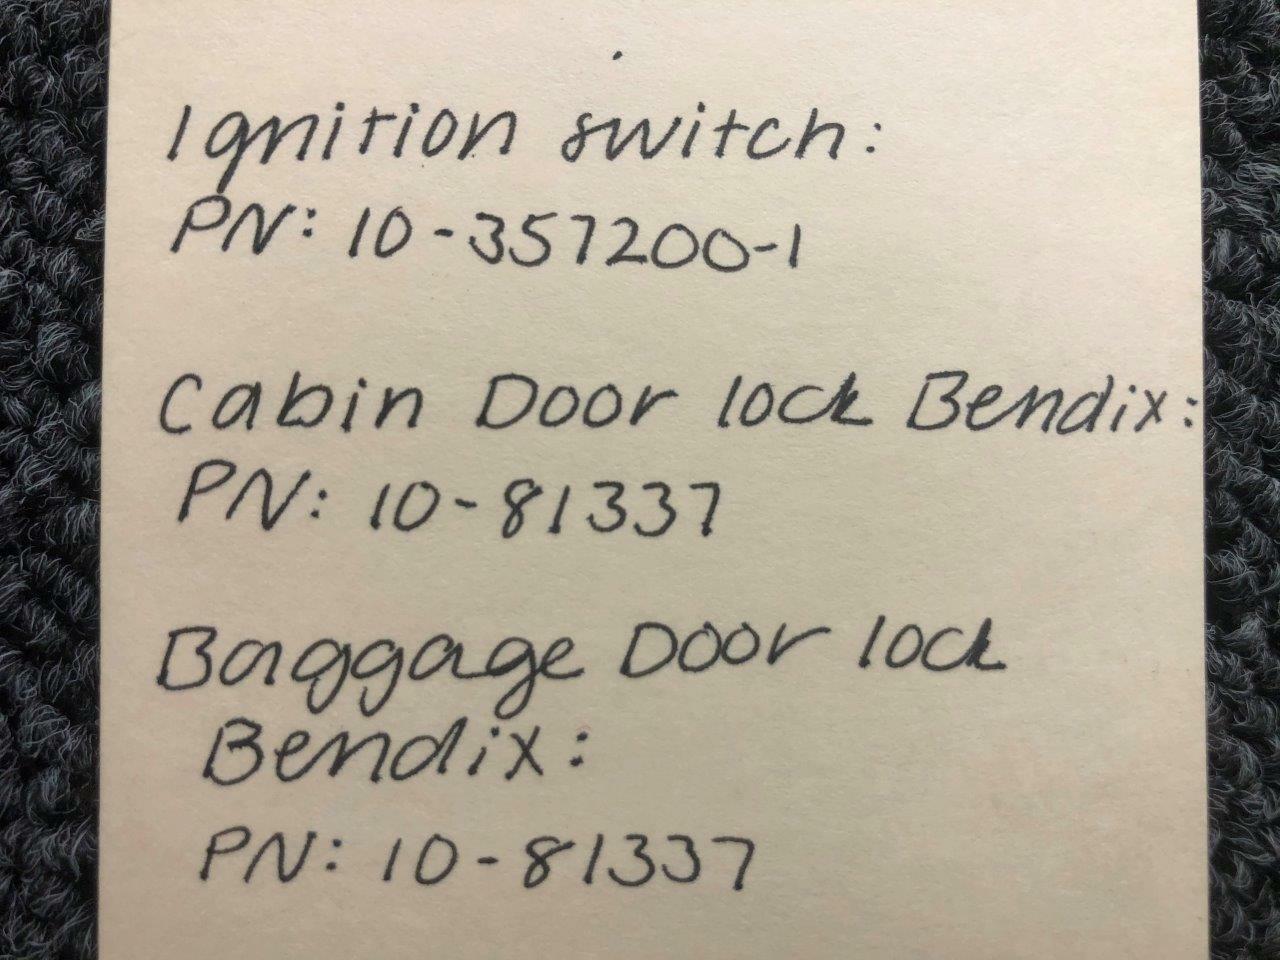 Ignition switch:
PN: 10-357200-1
Cabin Door lock Bendix:
PN: 10-81337
Baggage Door lock
Bendix:
PN: 10-81337